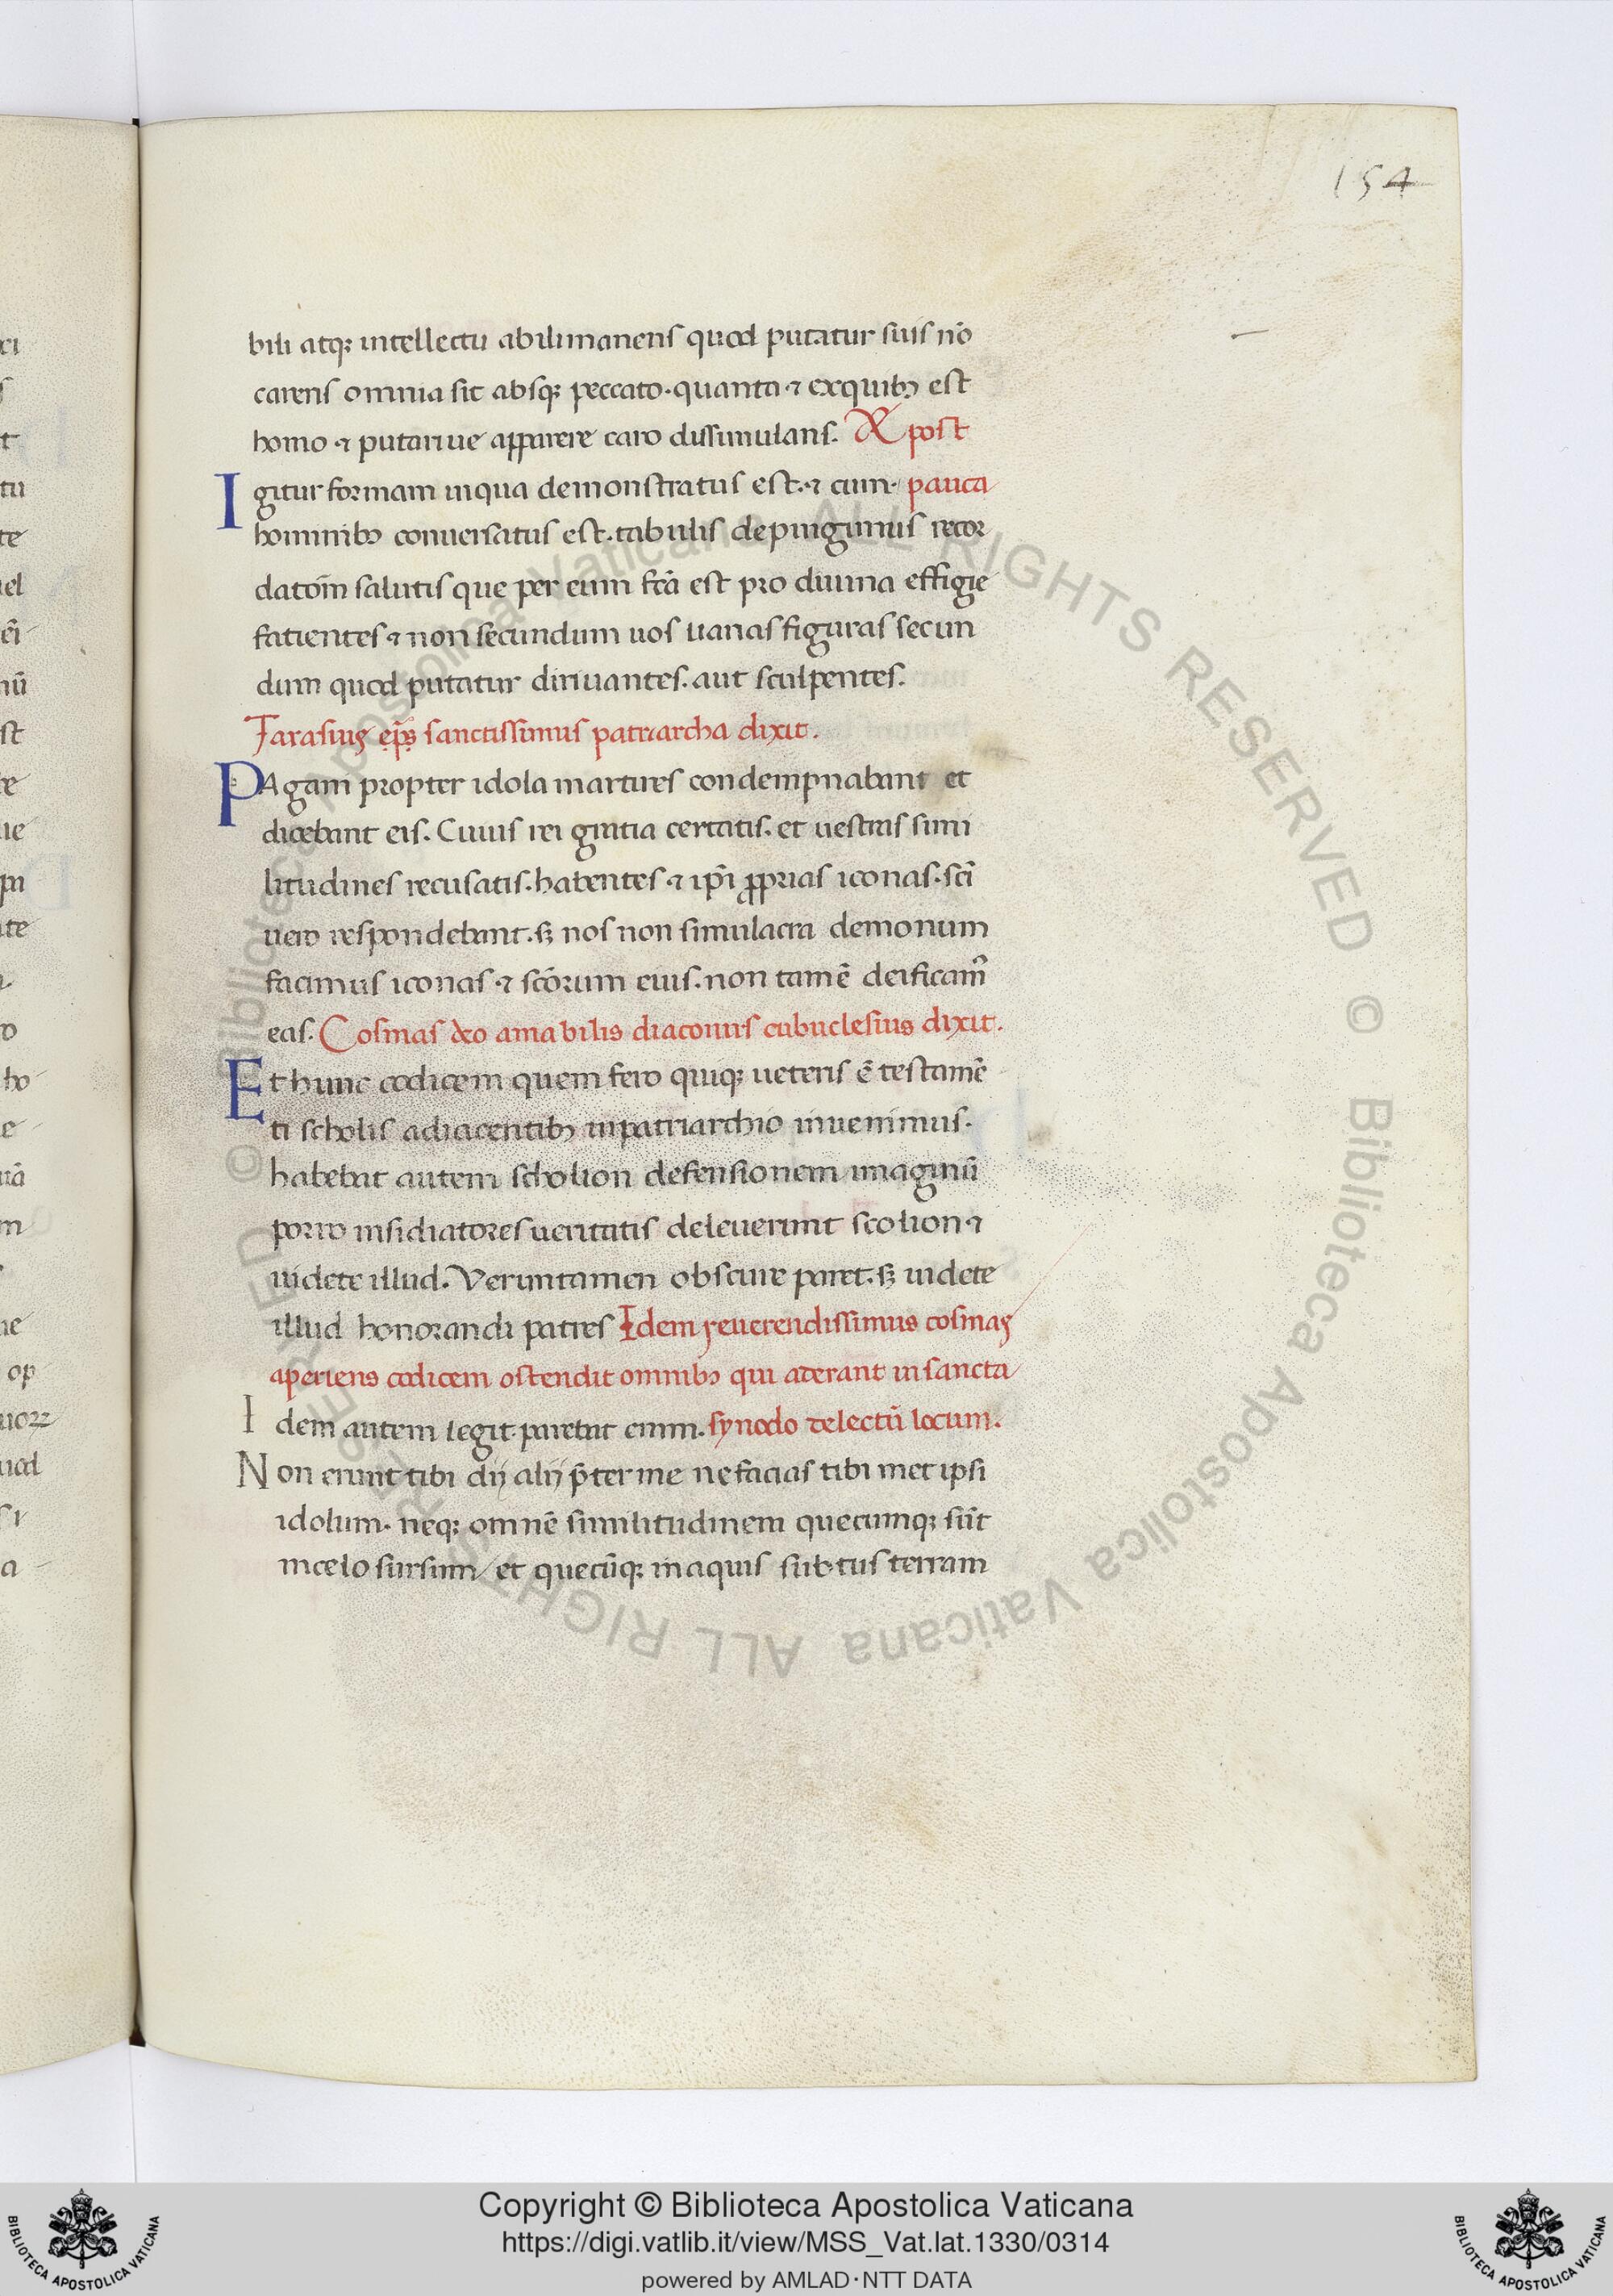 154
bili atq; intellectu abilimanens quod putatur suis nō
carens omnia sit absq; peccato. quanta ⁊ exquib; est
homo ⁊ putariue apparere caro dissimulans. Et post
Igitur formam inqua demonstratus est. ⁊ cum. pauca
hominib; conuersatus est. tabulis depingimus recor
datōm salutis que per eum fcā est pro diuina effigie
fatientes ⁊ non secundum uos uanas figuras secun
dum quod putatur diriuantes. aut sculpentes.
Tarasius ep̄s sanctissimus patriarcha dixit.
PAgani propter idola martires condempnabant et
dicebant eis. Cuius rei gratia certatis. et uestras simi
litudines recusatis. habentes ⁊ ip̄i p̱prias iconas. sc̄i
uero respondebant. s; nos non simulacra demonum
facimus iconas ⁊ scōrum eius. non tamē deificam̄
eas. Cosmas deo amabilis diaconus cubuclesius dixit.
Et hunc codicem quem fero quiq; ueteris ē testamē
ti scholis adiacentib; inpatriarchio inuenimus.
habebat autem scholion defensionem imaginū
porro insidiatores ueritatis deleuerunt scolion ⁊
uidete illud. Veruntamen obscure paret. s; uidete
illud honorandi patres Idem reuerendissimus cosmas
aperiens codicem ostendit omnib; qui aderant in sancta
Idem autem legit. parebat enim. synodo delectū locum.
Non erunt tibi dij alij p̄ter me ne facias tibi met ipsi
idolum. neq; omnē similitudinem quecumq; sūt
incelo sursum et quecūq; inaquis subtus terram
© Biblioteca Apostolica Vaticana ALL RIGHTS RESERVED © Biblioteca Apostolica Vaticana ALL RIGHTS RESERVED
Copyright © Biblioteca Apostolica Vaticana
https://digi.vatlib.it/view/MSS_Vat.lat.1330/0314
powered by AMLAD·NTT DATA
BIBLIOTECA APOSTOLICA VATICANA
BIBLIOTECA APOSTOLICA VATICANA